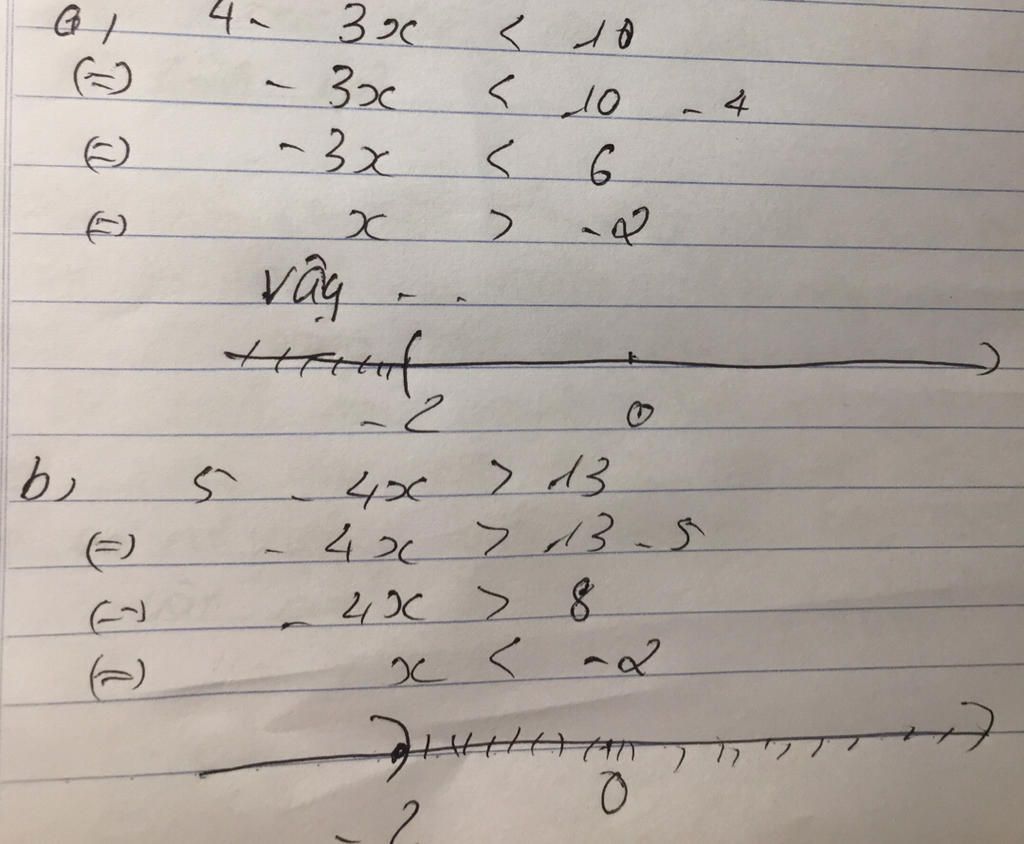 a, 4 - 3x < 10
(=) - 3x < 10 - 4
(=) - 3x < 6
(=) x > -2
Vậy - -
-2 0
b, 5 - 4x > 13
(=) - 4x > 13 - 5
(=) - 4x > 8
(=) x < -2
0
-2